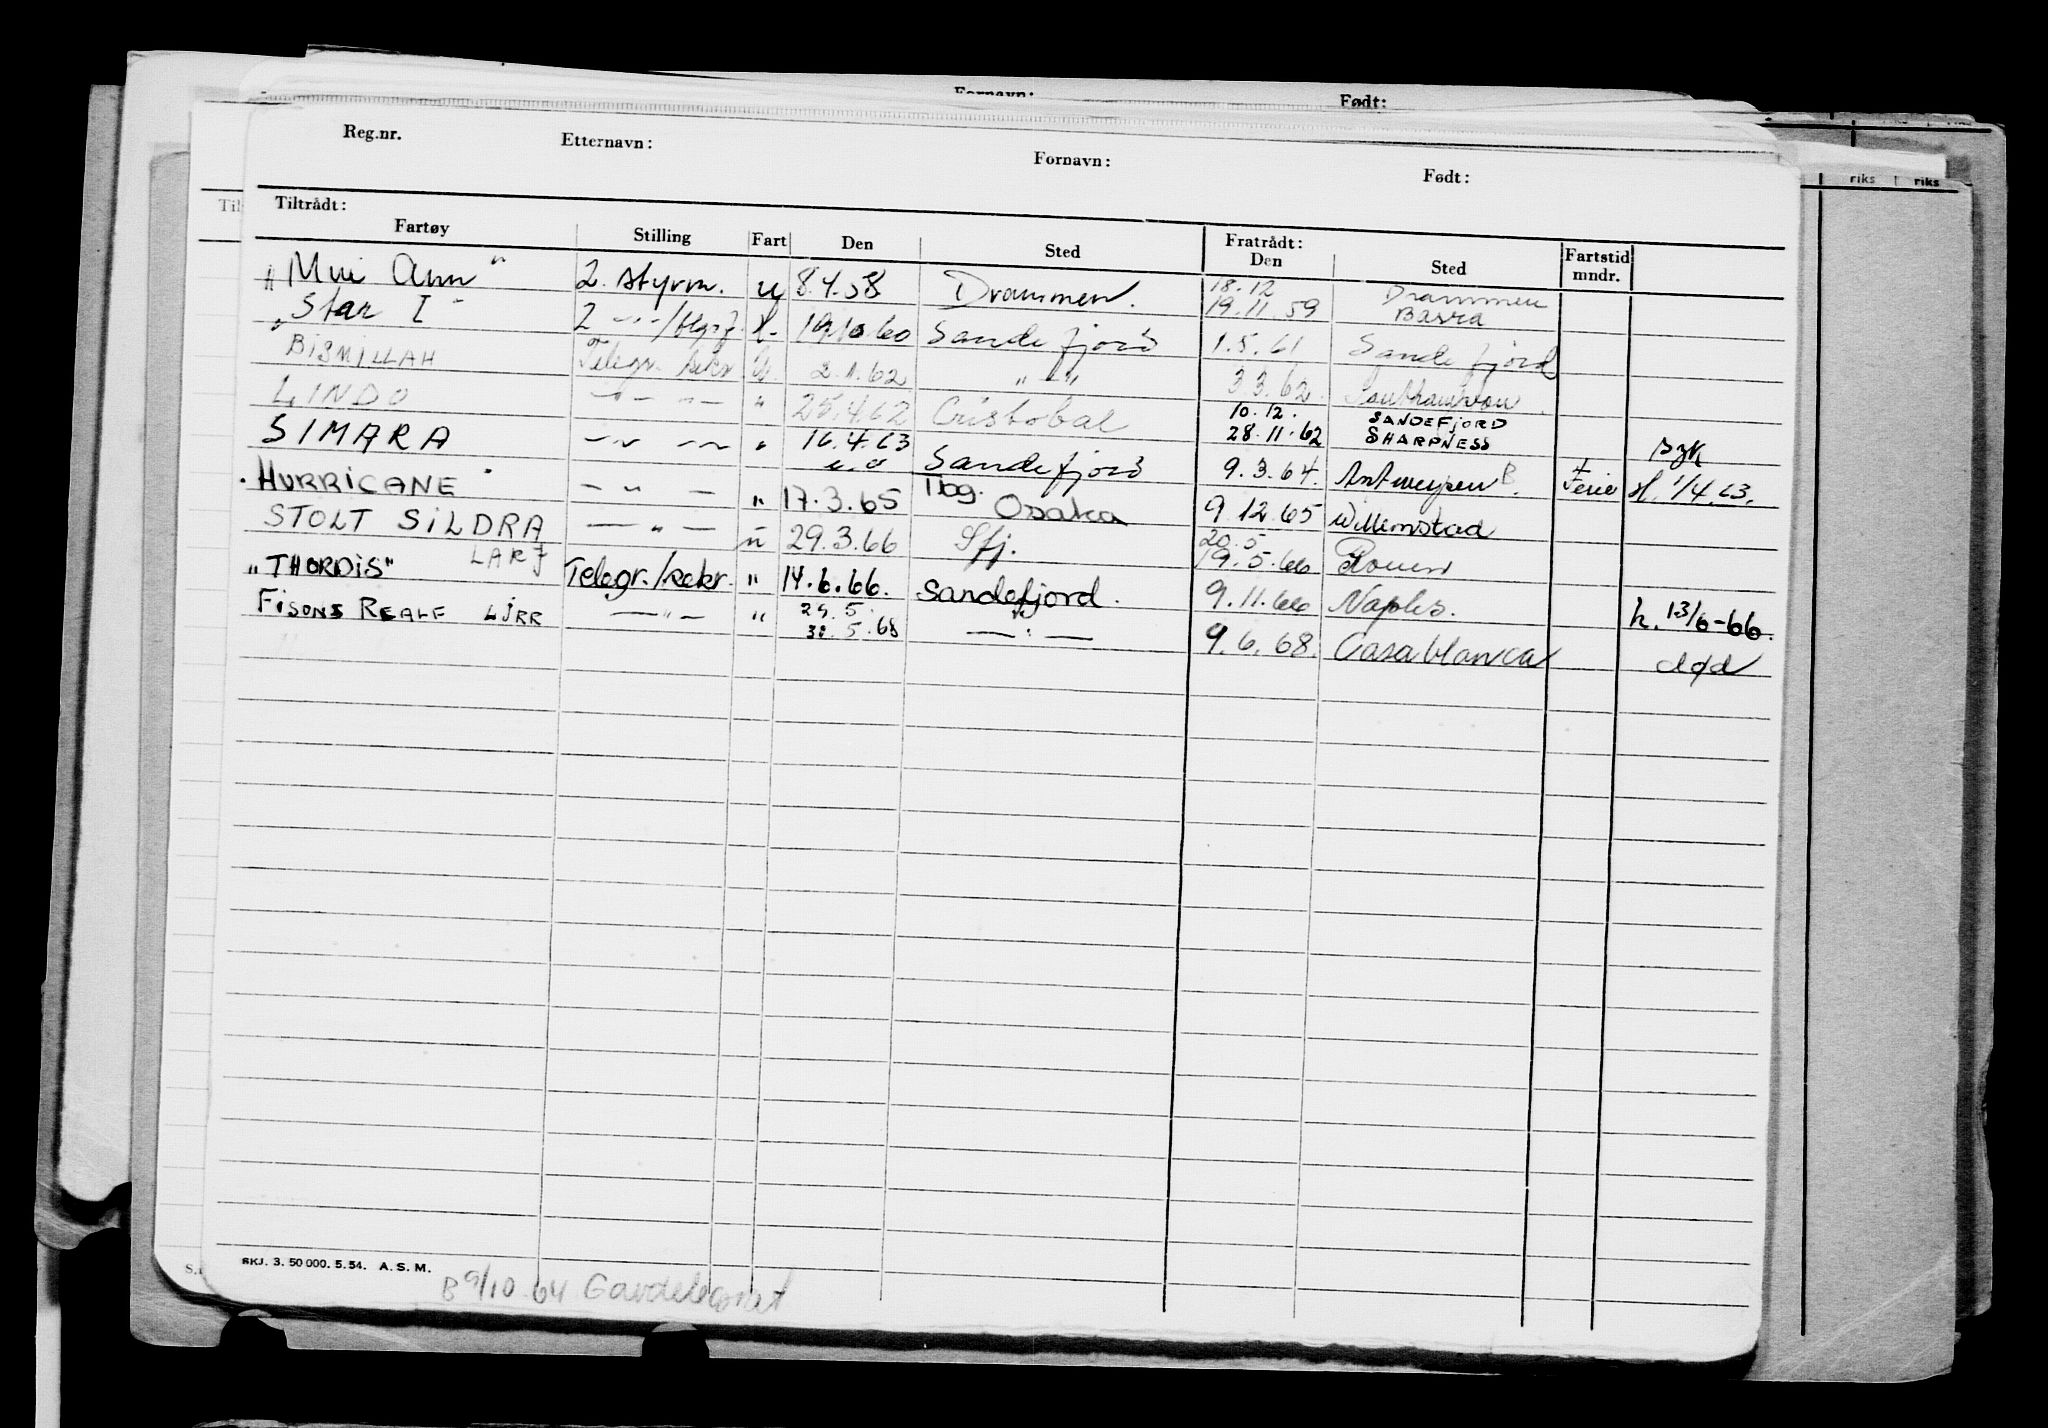 Fornavn: Født:
Reg.nr. Etternavn: Fornavn: Født:
riks riks
Tiltrådt: Fratrådt:
Fartøy Stilling Fart Den Sted Den Sted Fartstid mndr.
18.12 Drammen
"Mui Ann" 2. styrm. u 8.4.58 Drammen. 19.11.59 Basra
"Star I" 2 -"- 19.10.60 Sandefjord 1.5.61 Sandefjord
BISMILLAH Telegr. sekr U. 2.1.62 -"- 3.3.62. Southampton
10.12. SANDEFJORD
LINDO -"- -"- " 25.4.62 Cristobal 28.11.62 SHARPNESS syk
SIMARA -"- -"- " 16.4.63 Sandefjord 9.3.64. Antwerpen B. + Ferie 1/4.63.
u.o Tbg.
"HURRICANE" - " - " 17.3.65 Osaka 9.12.65 Willemstad
20.5
STOLT SILDRA LARJ - " - u 29.3.66 Sfj. 19.5.66 Rouen
"THORDIS" Telegr./sekr. " 14.6.66. Sandefjord. 9.11.66 Naples. h. 13/6-66.
29.5.
FISONS REALF LJRR - " - " 30.5.68 - " - 9.6.68. Casablanca død
SKJ. 3. 50 000. 5.54. A. S. M.
B 9/10.64